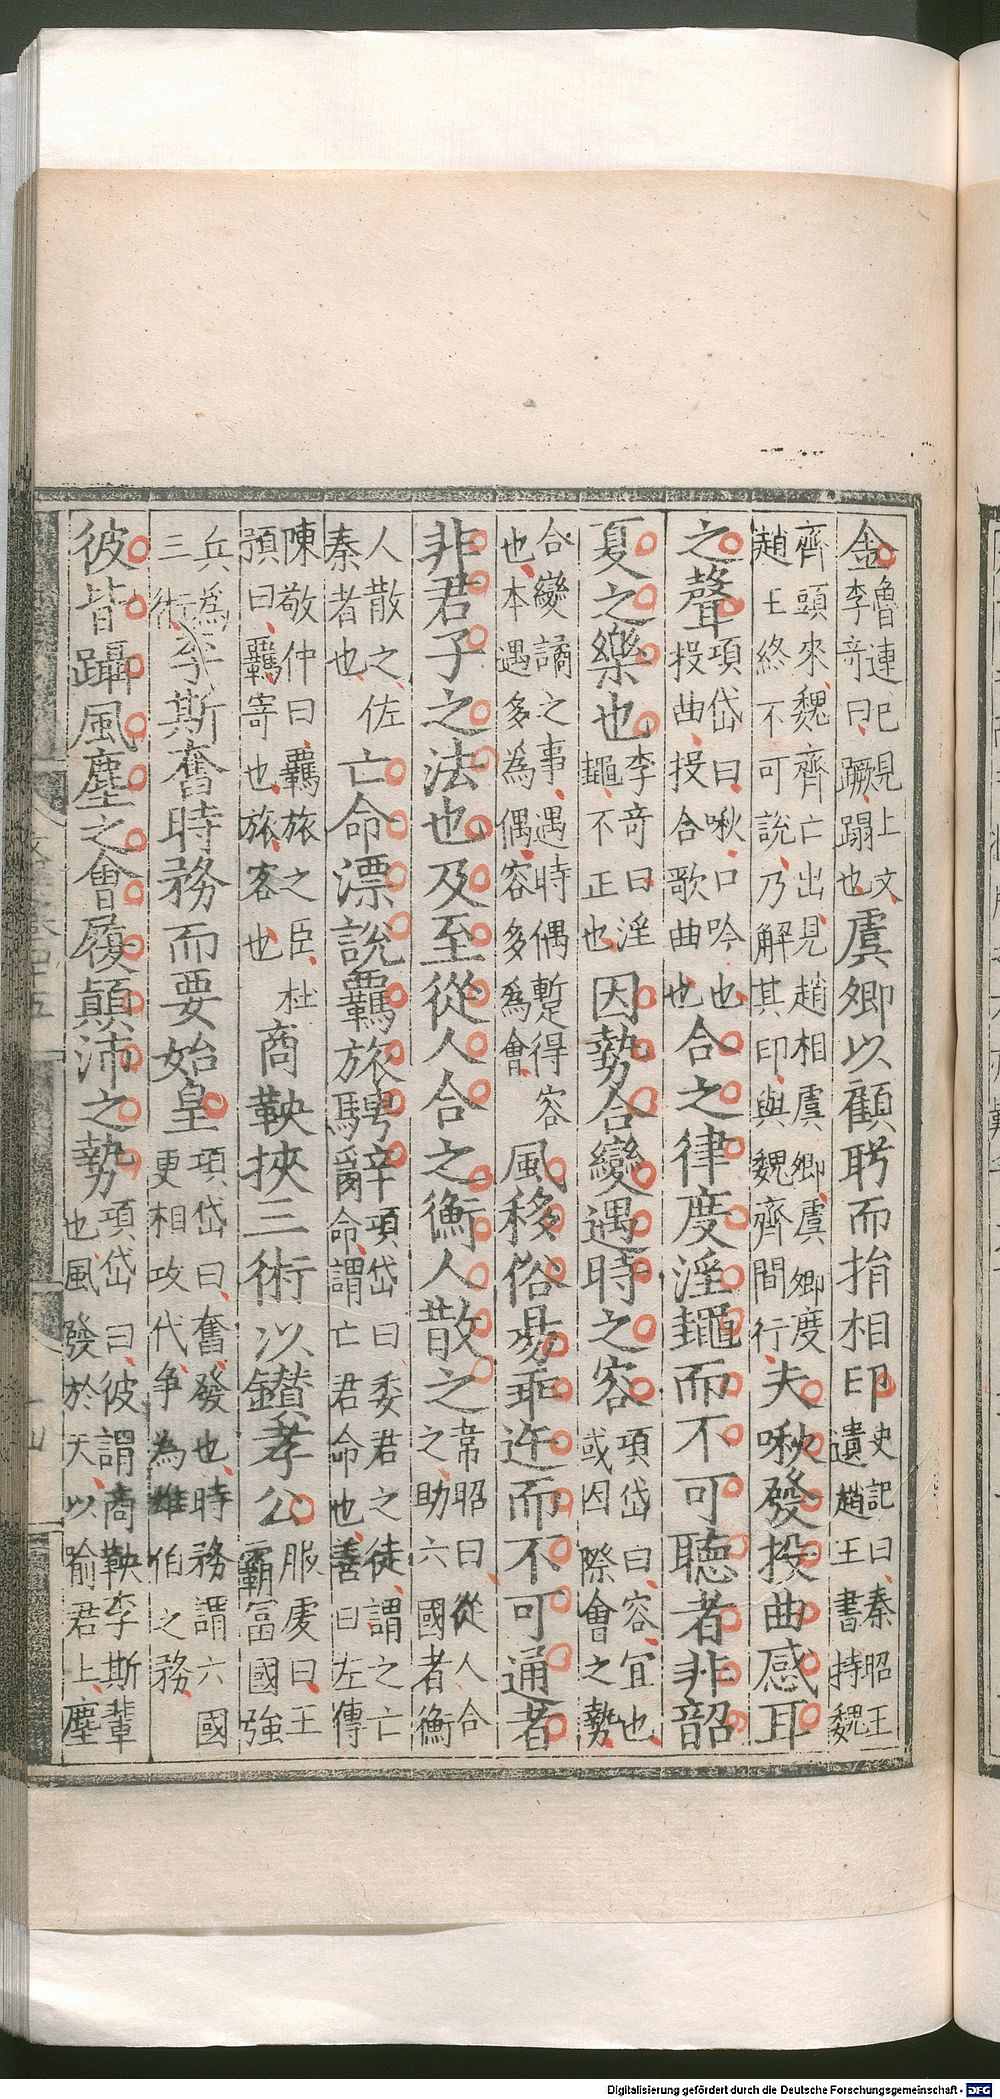 金魯連已見上文李竒曰蹶蹋也虞卿以顧眄而捐相印史記曰秦昭王遺趙王書持魏
齊頭來魏齊亡出見趙相虞卿虞卿度趙王終不可說乃解其印與魏齊間行夫啾發投曲感耳
之聲項岱曰啾口吟也投曲投合歌曲也合之律度淫𪓰而不可聽者非韶
夏之樂也李竒曰淫𪓰不正也因勢合變遇時之容項岱曰容冝也或因際會之勢
合變譎之事遇時偶暫得容也本遇多為偶容多為會風移俗易乖迕而不可通者
非君子之法也及至從人合之衡人散之韋昭曰從人合之助六國者衡
人散之佐秦者也亡命漂說羈旅騁辭項岱曰委君之徒謂之亡爵命謂亡君命也善曰左傳
陳敬仲曰羈旅之臣杜預曰羈寄也旅客也商鞅挾三術以鑚孝公服䖍曰王霸冨國強
兵為三術李斯奮時務而要始皇項岱曰奮發也時務謂六國更相攻伐争為雄伯之務
彼皆躡風塵之會履顛沛之勢項岱曰彼謂商鞅李斯輩也風發於天以喻君上塵
Digitalisierung gefördert durch die Deutsche Forschungsgemeinschaft - DFG